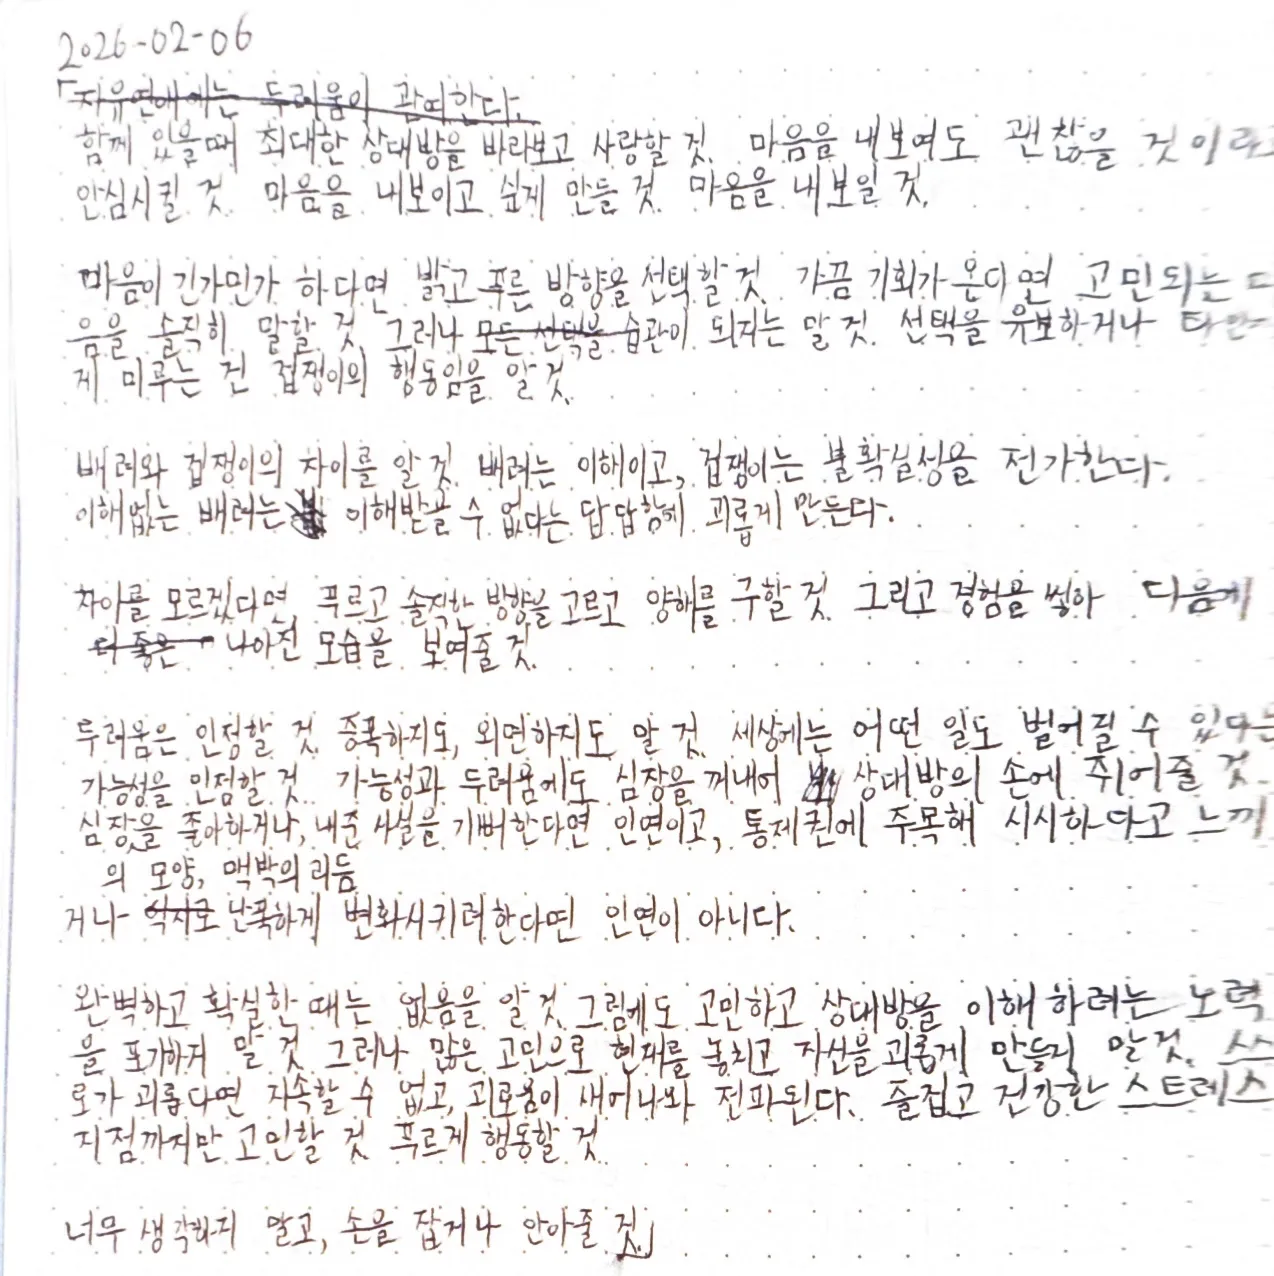 2026-02-06
「자유연애에는 두려움이 관여한다.
함께 있을때 최대한 상대방을 바라보고 사랑할 것. 마음을 내보여도 괜찮을 것이라고
안심시킬 것. 마음을 내보이고 쉽게 만들 것. 마음을 내보일 것.
마음이 긴가민가 하다면 밝고 푸른 방향을 선택할 것. 가끔 기회가 온다면 고민되는
음을 솔직히 말할 것. 그러나 모든 선택을 습관이 되지는 말 것. 선택을 유보하거나
게 미루는 건 겁쟁이의 행동임을 알 것.
배려와 겁쟁이의 차이를 알 것. 배려는 이해이고, 겁쟁이는 불확실성을 전가한다.
이해없는 배려는 이해받을 수 없다는 답답함에 괴롭게 만든다.
차이를 모르겠다면, 푸르고 솔직한 방향을 고르고 양해를 구할 것. 그리고 경험을 쌓아 다음에
더 좋은 나아진 모습을 보여줄 것.
두려움은 인정할 것. 증폭하지도, 외면하지도 말 것. 세상에는 어떤 일도 벌어질 수 있다는
가능성을 인정할 것. 가능성과 두려움에도 심장을 꺼내어 상대방의 손에 쥐어줄 것.
심장을 좋아하거나, 내준 사실을 기뻐한다면 인연이고, 통제권에 주목해 시시하다고 느끼
의 모양, 맥박의 리듬
거나 억지로 난폭하게 변화시키려한다면 인연이 아니다.
완벽하고 확실한 때는 없음을 알 것. 그럼에도 고민하고 상대방을 이해하려는 노력
을 포기하지 말 것. 그러나 많은 고민으로 현재를 놓치고 자신을 괴롭게 만들지 말 것. 스스
로가 괴롭다면 지속할 수 없고, 괴로움이 새어나와 전파된다. 즐겁고 건강한 스트레스
지점까지만 고민할 것. 푸르게 행동할 것.
너무 생각하지 말고, 손을 잡거나 안아줄 것.」